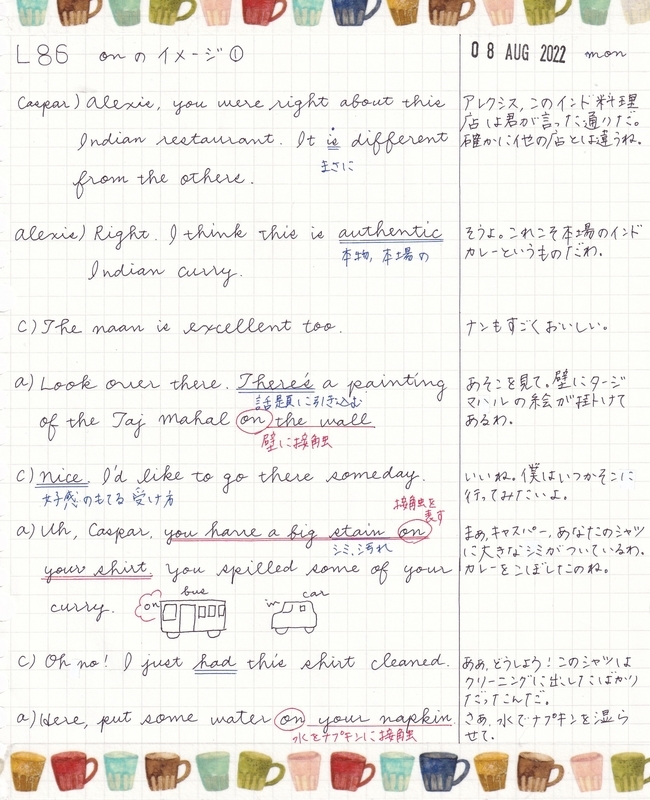 L86 onのイメージ①
08 AUG 2022 mon
Caspar) Alexis, you were right about this
Indian restaurant. It is different
まさに
from the others.
アレクシス、このインド料理
店は君が言った通りだ。
確かに他の店とは違うね。
Alexis) Right. I think this is authentic
本物, 本場の
Indian curry.
そうよ。これこそ本場のインド
カレーというものだわ。
C) The naan is excellent too.
ナンもすごくおいしい。
a) Look over there. There's a painting
話題に引き込む
of the Taj Mahal on the wall
壁に接触
あそこを見て。壁にタージ
マハルの絵が掛けて
あるわ。
C) Nice. I'd like to go there someday.
好感のもてる受け方
いいね。僕はいつかそこに
行ってみたいよ。
接触を
表す
a) Uh, Caspar, you have a big stain on
シミ、汚れ
your shirt. You spilled some of your
curry.
on bus
in car
まあ、キャスパー、あなたのシャツ
に大きなシミがついているわ。
カレーをこぼしたのね。
C) Oh no! I just had this shirt cleaned.
ああ、どうしよう！このシャツは
クリーニングに出したばかり
だったんだ。
a) Here, put some water on your napkin.
水をナプキンに接触
さあ、水でナプキンを湿ら
せて。